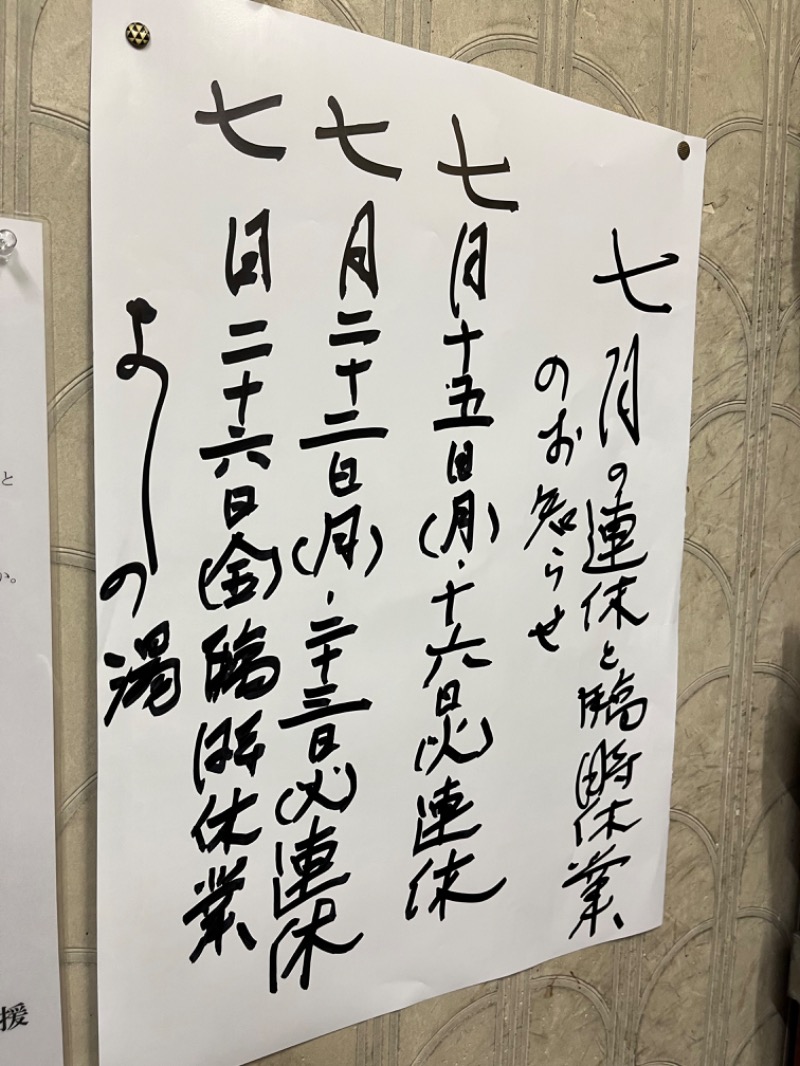 七月の連休と臨時休業
のお知らせ
七月十五日(月)・十六日(火)連休
七月二十二日(月)・二十三日(火)連休
七月二十六日(金)臨時休業
よしの湯
と
か。
援